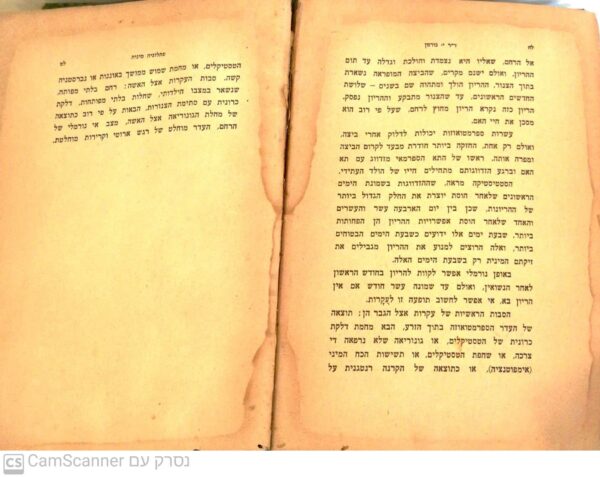 לח
ד״ר י. גורמן
אל הרחם, שאליו היא נצמדת והולכת וגדלה עד תום
ההריון. ואולם ישנם מקרים, שהביצה המופראה נשארת
בתוך הצנור, ההריון הולך ומתהוה שם בשנים – שלושת
החדשים הראשונים, עד שהצנור מתבקע וההריון נפסק.
הריון כזה נקרא הריון מחוץ לרחם, שעל פי רוב הוא
מסכן את חיי האם.
עשרות ספרמטוזואות יכולות לדלוק אחרי ביצה,
ואולם רק אחת, החזקה ביותר חודרת מבעד לקרום הביצה
ומפרה אותה. ראשו של התא הספרמאי מזדווג עם תא
האם וברגע הזדווגותם מתחילים חייו של הולד העתידי.
הסטטיסטיקה מראה, שההזדווגות בשמונת הימים
הראשונים שלאחר הוסת יוצרת את החלק הגדול ביותר
של ההריונות, שכן בין יום הארבעה עשר והעשרים
והאחד שלאחר הוסת אפשרויות ההריון הן הפחותות
ביותר. שבעת ימים אלו ידועים כשבעת הימים הבטוחים
ביותר, ואלה הרוצים למנוע את ההריון מגבילים את
זיקתם המינית רק בשבעת הימים האלה.
באופן נורמלי אפשר לקוות להריון בחודש הראשון
לאחר הנשואין, ואולם עד שמונה עשר חודש אם אין
הריון בא, אי אפשר לחשוב תופעה זו לעֲקָרוּת.
הסבות הראשיות של עקרות אצל הגבר הן: תוצאה
של העדר הספרמטוזואה בתוך הזרע, הבא מחמת דלקת
כרונית של הטסטיקלים, או גונוריאה שלא נרפאה די
צרכה, או שחפת הטסטיקלים, או תשישות הכח המיני
(אימפוטנציה), או כתוצאה של הקרנה רנטגנית על
פתולוגיה מינית
לט
הטסטיקלים, או מחמת שמוש ממושך באוננות או נברסטניה
קשה. סבות העקרות אצל האשה: רחם בלתי מפותח,
שנשאר במצבו הילדותי, שחלות בלתי מפותחות, דלקת
כרונית עם סתימת הצנורות, הבאות על פי רוב כתוצאה
של מחלת הגונוריאה אצל האשה, מצב אי נורמלי של
הרחם, העדר מוחלט של רגש ארוטי וקרירות מוחלטת.
CS CamScanner נסרק עם